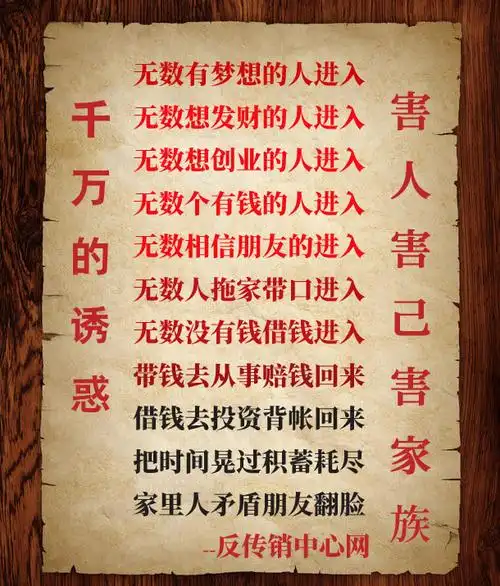 千万的诱惑
无数有梦想的人进入
无数想发财的人进入
无数想创业的人进入
无数个有钱的人进入
无数相信朋友的进入
无数人拖家带口进入
无数没有钱借钱进入
带钱去从事赔钱回来
借钱去投资背帐回来
把时间晃过积蓄耗尽
家里人矛盾朋友翻脸
--反传销中心网
害人害己害家族